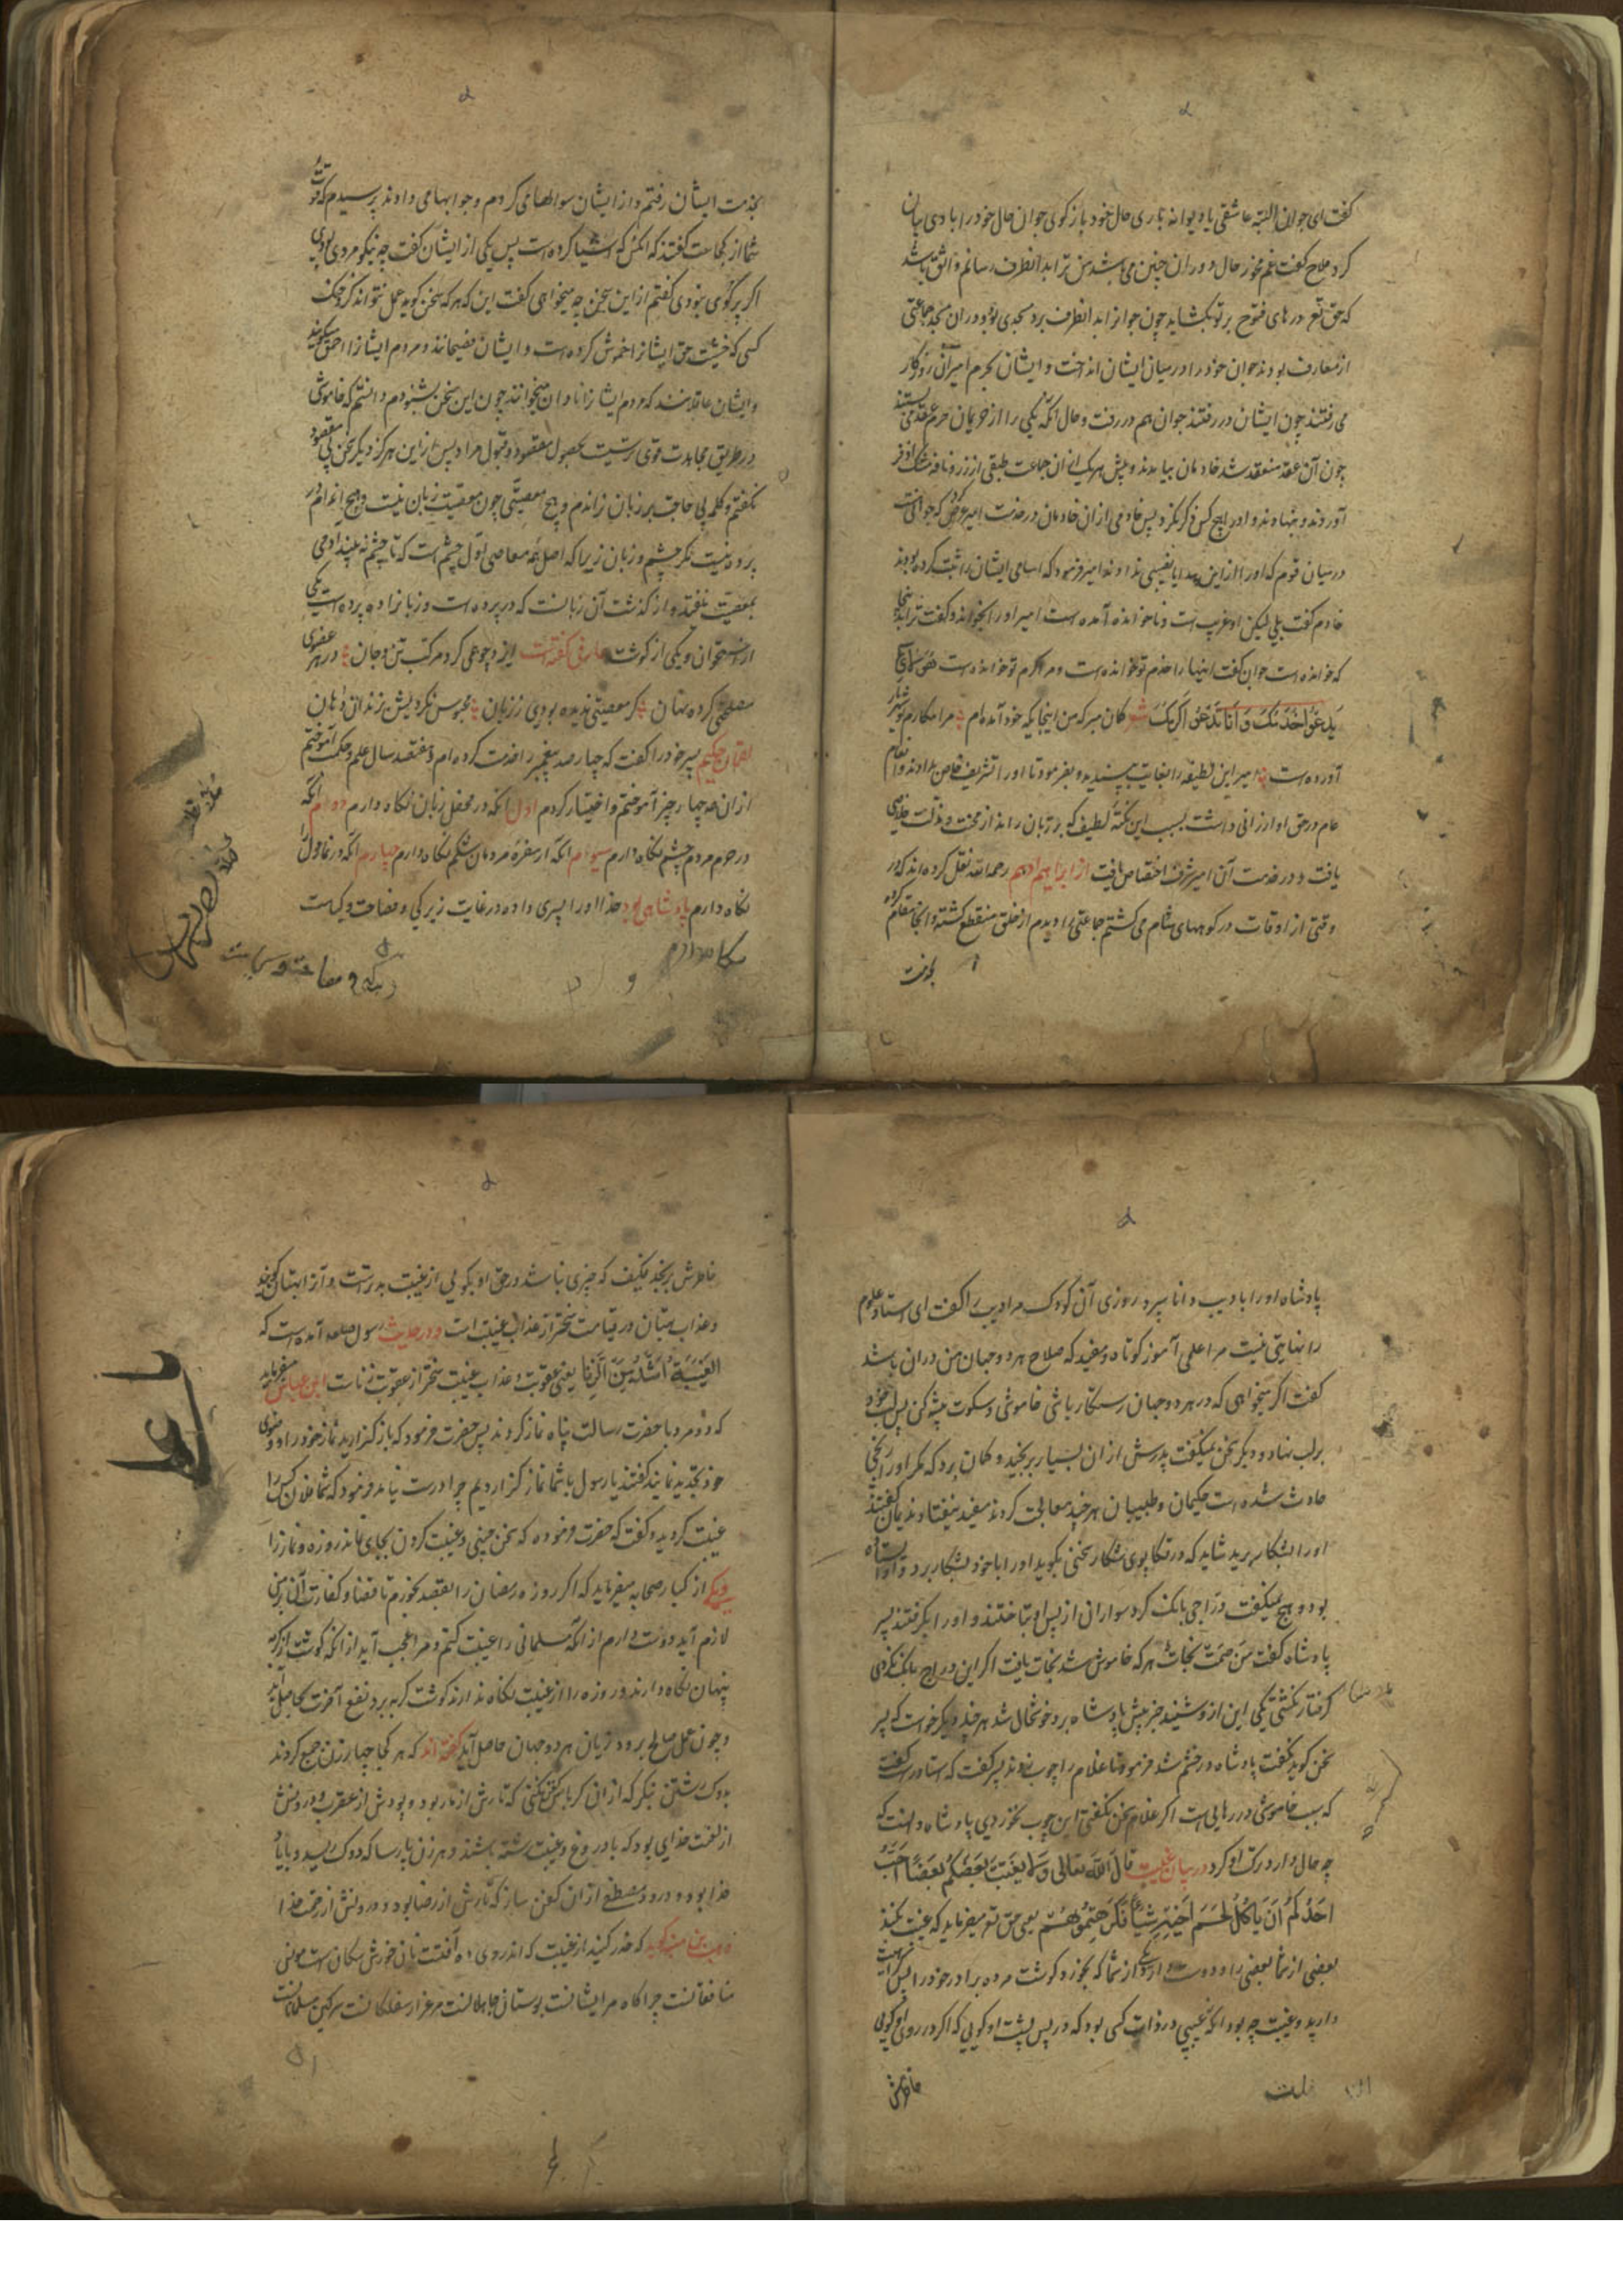 گفت ای جوان البته عاشقی یا دیوانه باری حال خود باز گوی جوان حال خود را با وی بیان
کرد ملاح گفت غم مخور حال دوران چنین می باشد من ترا بدانطرف رسانم واثق باش
که حق تع درهای فتوح بر تو بگشاید چون جوانرا بدانطرف برد مسجدی بود و دران مسجد جماعتی
از معارف بودند جوان خود را در میان ایشان انداخت و ایشان بحرم امیر آن روزگار
می رفتند چون ایشان در رفتند جوان هم در رفت و حال آنکه یکی را از حریمان حرم عقد می بستند
چون آن عقد منعقد شد خادمان بیامدند و پیش هر یک ازان جماعت طبقی از زر و نافه مشک اذفر
آوردند و بنهادند و او را هیچکس ذکر نکرد پس خادمی ازان خادمان در خدمت امیر عرض کرد که جوانیست
در میان قوم که او را ازین هدایا نصیبی ندادند امیر فرمود که اسامی ایشان را ثبت کرده بودند
خادم گفت بلی لیکن او غریب است و ناخوانده آمده است امیر او را بخواند و گفت ترا بدینجا
که خوانده است جوان گفت اینها را خدم تو خوانده است و مرا کرم تو خوانده است
یدعوا خدمک و انا تدعونی اکرمک شعر گمان مبر که من اینجایگه خود آمده ام مرا مکارم تو
آورده است امیر این لطیفه را بغایت پسندید و بفرمود تا او را تشریف خاص دادند و انعام
عام در حق او ارزانی داشت بسبب این نکته لطیف که بر زبان راند از محنت و مذلت خلاصی
یافت و در خدمت آن امیر شرف اختصاص یافت از ابراهیم ادهم رحمه الله نقل کرده اند که در
وقتی از اوقات در کوههای شام می گشتم جماعتی را دیدم از خلق منقطع گشته و آنجا مقام کرده
بخدمت
بخدمت ایشان رفتم و از ایشان سوالها می کردم و جوابها می دادند پرسیدم که قوت
شما از کجاست گفتند که آنکس که اشیا کرده است پس یکی از ایشان گفت چه نیکو مردی بودی
اگر پرگوی نبودی گفتم ازین سخن چه میخواهی گفت این که هر که سخن گوید عمل نتواند کرد
کسی که خشیت حق ایشانرا خموش کرده است و ایشان فصیحانند و مردم ایشانرا احمق میگویند
و ایشان عاقلانند که مردم ایشانرا نادان میخوانند چون این سخن بشنودم دانستم که خاموشی
در طریق مجاهدت قوی ترست بحصول مقصود و قبول مراد پس ازین هرگز دیگر سخن بی مقصود
نگفتم و کلمه بی حاجت بر زبان نراندم و هیچ معصیتی چون معصیت زبان نیست و هیچ اندام در
پرده نیست مگر چشم و زبان زیرا که اصل همه معاصی اول چشم است که تا چشم نه بیند آدمی
بمعصیت نیفتد و از گذشت آن زبانست که در پرده است و زبانرا دو پرده است یکی
از استخوان و یکی از گوشت عارفی گفته است ایزد چو همی کرد مرکب تن و جان در هر عضوی
مصلحتی کرده نهان گر معصیتی ندیده بودی ز زبان محبوس نکردیش بزندان دهان
لقمان حکیم پسر خود را گفت که چهار صد پیغمبر را خدمت کرده ام و هفتصد سال علم و حکمت آموختم
از آن همه چهار چیز آموختم و اختیار کردم اول آنکه در محفل زبان نگاه دارم دوم آنکه
در حرم مردم چشم نگاه دارم سیوم آنکه از سفره مردمان شکم نگاه دارم چهارم آنکه در نماز دل
نگاه دارم پادشاهی بود خدا او را پسری داده در غایت زیرکی و فصاحت و کیاست
پادشاه او را بادیب دانا سپرد روزی آن کودک مر ادیب را گفت ای استاد علوم
را نهایتی نیست مرا علمی آموز کوتاه و مفید که صلاح هر دو جهان من دران باشد
گفت اگر میخواهی که در هر دو جهان رستگار باشی خاموشی و سکوت پیشه کن پسر لب خود
بر لب نهاد و دیگر سخن نمیگفت پدرش ازان بسیار برنجید و گمان برد که مگر او را رنجی
حادث شده است حکیمان و طبیبان هر چند معالجت کردند مفید نیفتاد ندیمان گفتند
او را بشکار برید شاید که در تگاپوی شکار سخنی بگوید او را با خود بشکار برد و او استاده
بود و هیچ نمیگفت دراجی بانگ کرد سواران از پس او بتاختند و او را بگرفتند پسر
پادشاه گفت من صمت نجات هر که خاموش شد نجات یافت اگر این دراج بانگ نکردی
گرفتار نگشتی یکی این از و شنید خبر پیش پادشاه برد خوشحال شد هر چند دیگر خواست که پسر
سخن گوید نگفت پادشاه در خشم شد فرمود تا غلام را چوب زدند پسر گفت که استاد راست گفت
که سبب خاموشی در رهایی است اگر غلام سخن نگفتی این چوب نخوردی پادشاه دانست که
چه حال دارد ترک او کرد در بیان غیبت قال الله تعالی ولا یغتب بعضکم بعضا احب
احدکم ان یاکل لحم اخیه میتا فکرهتموه یعنی حق تع میفرماید که غیبت نکنند
بعضی از شما بعضی را و دوست دارد یکی از شما که بخورد گوشت مرده برادر خود را پس کراهیت
دارید و غیبت چه بود آنکه عیبی در ذات کسی بود که در پس پشت او گویی که اگر در روی او گویی
خاطرش
خاطرش برنجد فکیف که چیزی نباشد در حق او بگویی از غیبت بدترست و آنرا بهتان گویند
و عذاب بهتان در قیامت سختر از عذاب غیبت است و در حدیث رسول صلعم آمده است که
الغیبة اشد من الزنا یعنی عقوبت و عذاب غیبت سختر از عقوبت زناست ابن عباس میفرماید
که دو مرد با حضرت رسالت پناه نماز کردند پس حضرت فرمود که باز گزارید نماز خود را و وضوی
خود تجدید نمایید گفتند یا رسول با شما نماز گزاردیم چرا درست نیامد فرمود که شما فلان کس را
غیبت کردید و گفت که حضرت فرموده که سخن چینی و غیبت کردن بجای نماند روزه و نماز را
ویکی از کبار صحابه میفرماید که اگر روزه رمضان را بقصد بخورم تا قضا و کفارت آن بر من
لازم آید دوست دارم از آنکه مسلمانی را غیبت کنم و مرا عجب آید از آنکه گوشت از گربه
پنهان نگاه دارند و روزه را از غیبت نگاه ندارند گوشت گربه برد نفع آخرت
و چون عمل صالح برود زیان هر دو جهان حاصل آید گفته اند که هر کجا چهار زن جمع گردند
بدوک رشتن بنگر که ازان کرباس کفن نکنی که تارش از مار بود و پودش از عقرب و دروش
از لعنت خدای بود که با دروغ و غیبت رشته باشند و هر زن پارسا که دوک ریسد و با یاد
خدا بود و درود مصطفی ازان کفن ساز که تارش از رضا بود و درونش از رحمت خدا
که حذر کنید از غیبت که اندروی ده آفتست نان خورش سگان است مونس
منافقانست چراگاه مر ایشانست بوستان جاهلانست مرغزار سفلگانست سرگین مسلمانانست